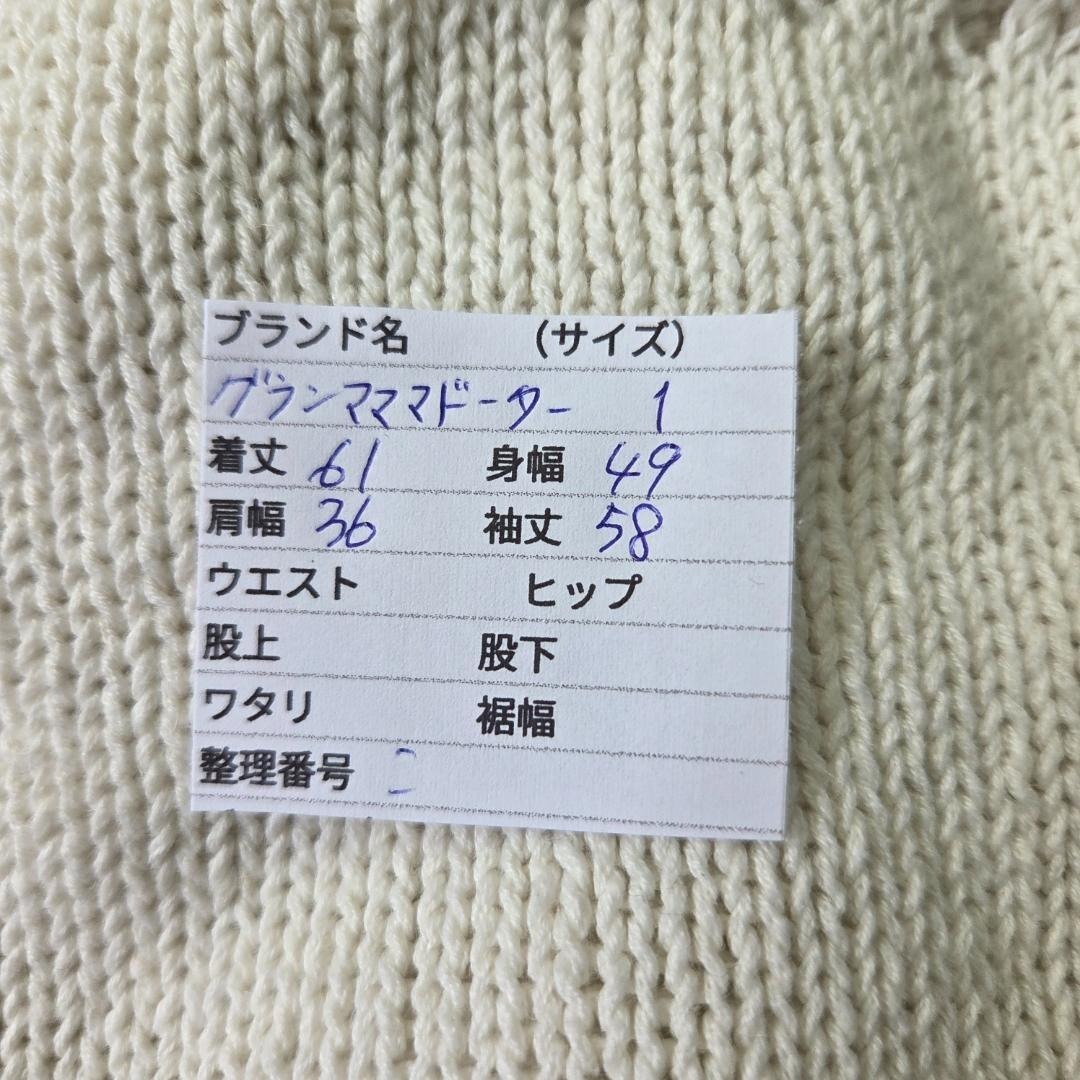 ブランド名 (サイズ)
グランマママドーター 1
着丈 61 身幅 49
肩幅 36 袖丈 58
ウエスト ヒップ
股上 股下
ワタリ 裾幅
整理番号